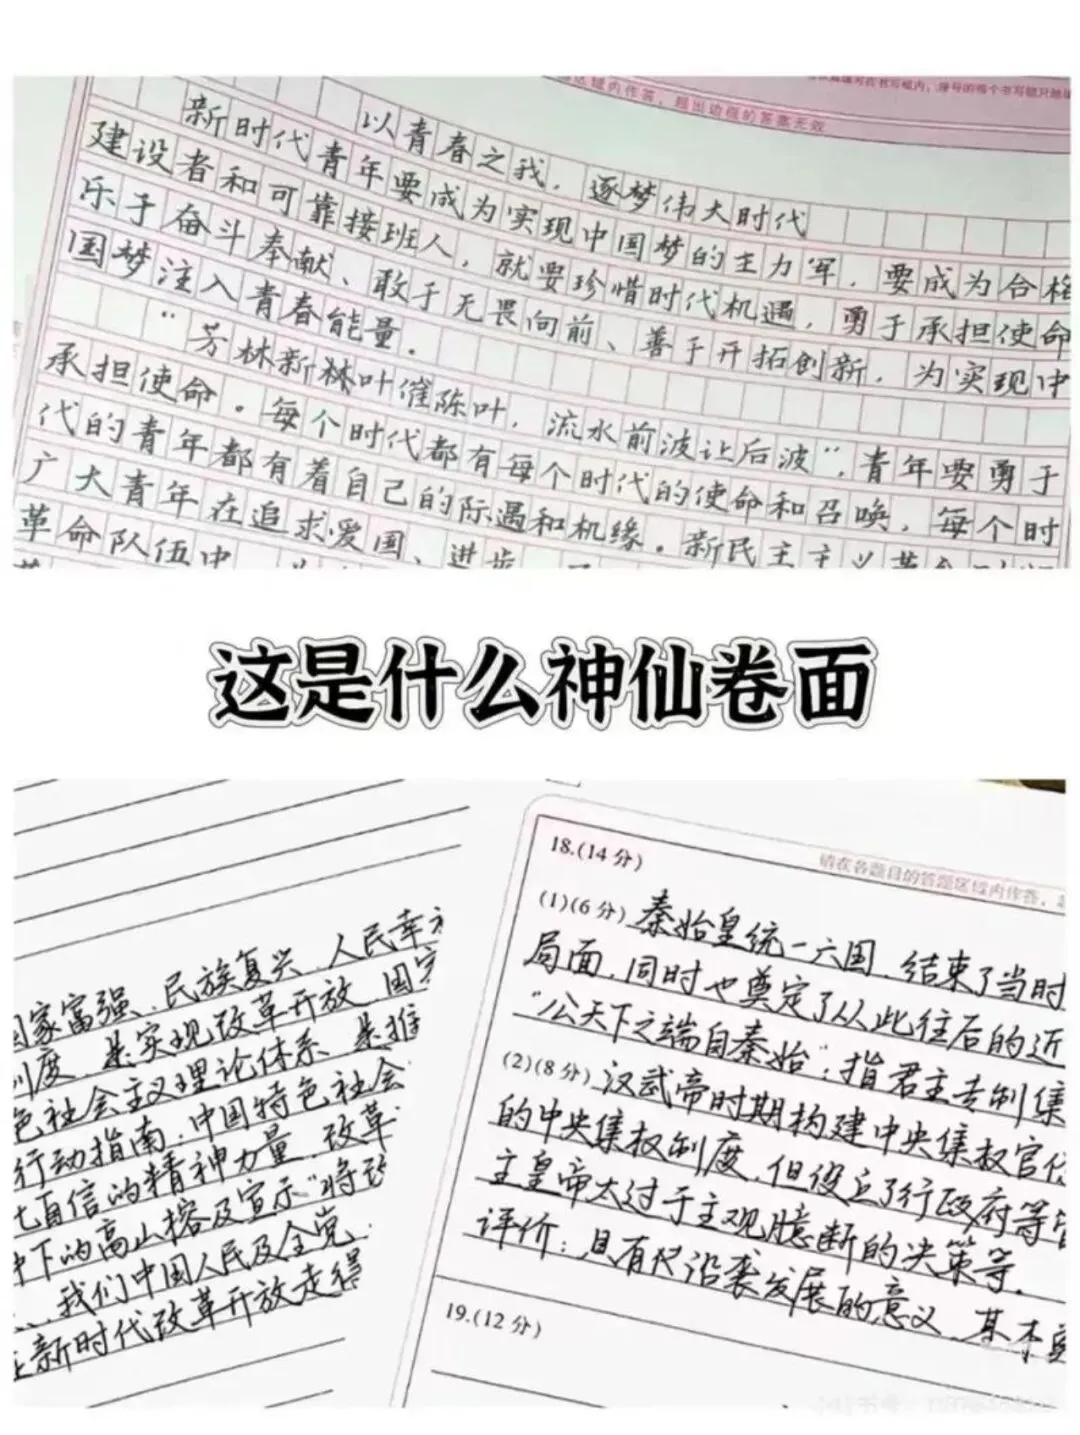 区域内作答，超出边框的答案无效
以青春之我，逐梦伟大时代
新时代青年要成为实现中国梦的主力军，要成为合格
建设者和可靠接班人，就要珍惜时代机遇，勇于承担使命
乐于奋斗奉献、敢于无畏向前、善于开拓创新，为实现中
国梦注入青春能量。
“芳林新林叶催陈叶，流水前波让后波”，青年要勇于
承担使命。每个时代都有每个时代的使命和召唤，每个时
代的青年都有着自己的际遇和机缘。新民主主义革命
广大青年在追求爱国、进步
革命队伍中
这是什么神仙卷面
国家富强、民族复兴、人民幸
制度，是实现改革开放、国家
色社会主义理论体系，是推
行动指南；中国特色社会
自信的精神力量，改革
下的高山榕及宣示“将改
我们中国人民及全党
新时代改革开放走得
请在各题目的答题区域内作答，
18.(14分)
(1)(6分) 秦始皇统一六国，结束了当时
局面，同时也奠定了从此往后的近
“公天下之端自秦始”；指君主专制集
(2)(8分) 汉武帝时期构建中央集权官
的中央集权制度，但设立了行政府等
主皇帝太过于主观臆断的决策等。
评价：具有代沿袭发展的意义，基本
19.(12分)